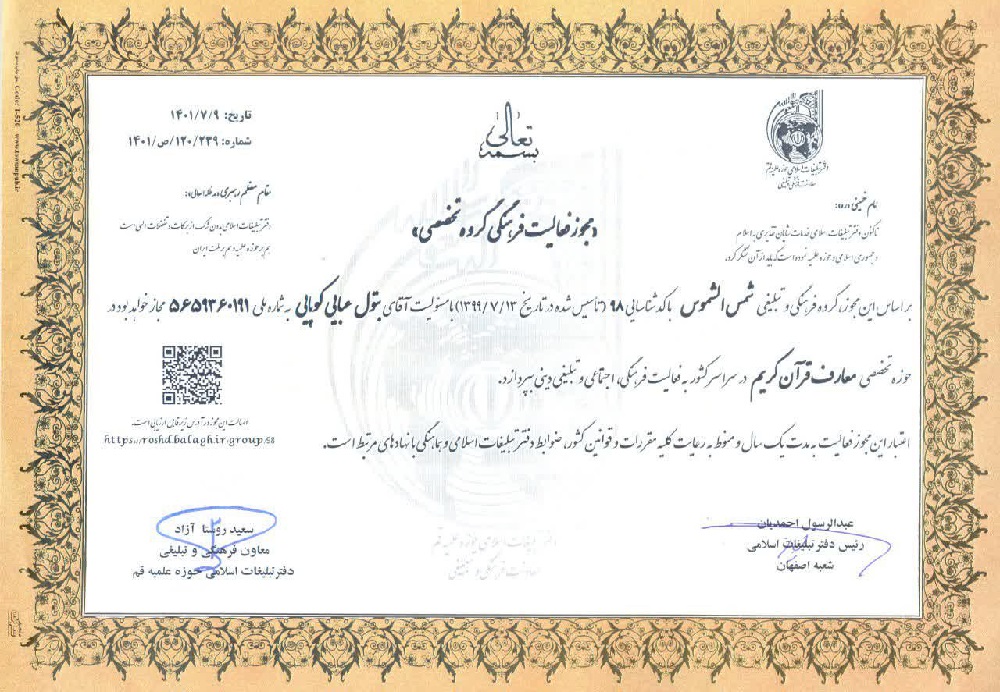 بسمه تعالی
تاریخ: ۱۴۰۱/۷/۹
شماره: ۱۲۰/۲۳۹/ص/۱۴۰۱
دفتر تبلیغات اسلامی حوزه علمیه قم
معاونت فرهنگی و تبلیغی
امام خمینی
تاکنون دفتر تبلیغات اسلامی خدمات شایان تقدیری به اسلام
و جمهوری اسلامی و حوزه علمیه نموده است که باید از آن تشکر کرد.
مقام معظم رهبری
دفتر تبلیغات اسلامی بدون شک از برکات و تفضلات الهی است
هم بر حوزه علمیه و هم بر ملت ایران
«مجوز فعالیت فرهنگی گروه تخصصی»
بر اساس این مجوز، گروه فرهنگی و تبلیغی شمس الشموس با کد شناسایی ۹۸ (تأسیس شده در تاریخ ۱۳۹۹/۷/۱۳) با مسئولیت آقای بتول میایی کوپایی به شماره ملی ۵۶۵۹۳۶۰۱۹۱ مجاز خواهد بود در
حوزه تخصصی معارف قرآن کریم در سراسر کشور به فعالیت فرهنگی، اجتماعی و تبلیغی دینی بپردازد.
اعتبار این مجوز فعالیت به مدت یک سال و منوط به رعایت کلیه مقررات و قوانین کشور، ضوابط دفتر تبلیغات اسلامی و هماهنگی با نهادهای مرتبط است.
اصالت این مجوز در آدرس زیر قابل ارزیابی است.
https://roshd.balagh.ir/group/68
عبدالرسول احمدیان
رئیس دفتر تبلیغات اسلامی
شعبه اصفهان
سعید روستا آزاد
معاون فرهنگی و تبلیغی
دفتر تبلیغات اسلامی حوزه علمیه قم